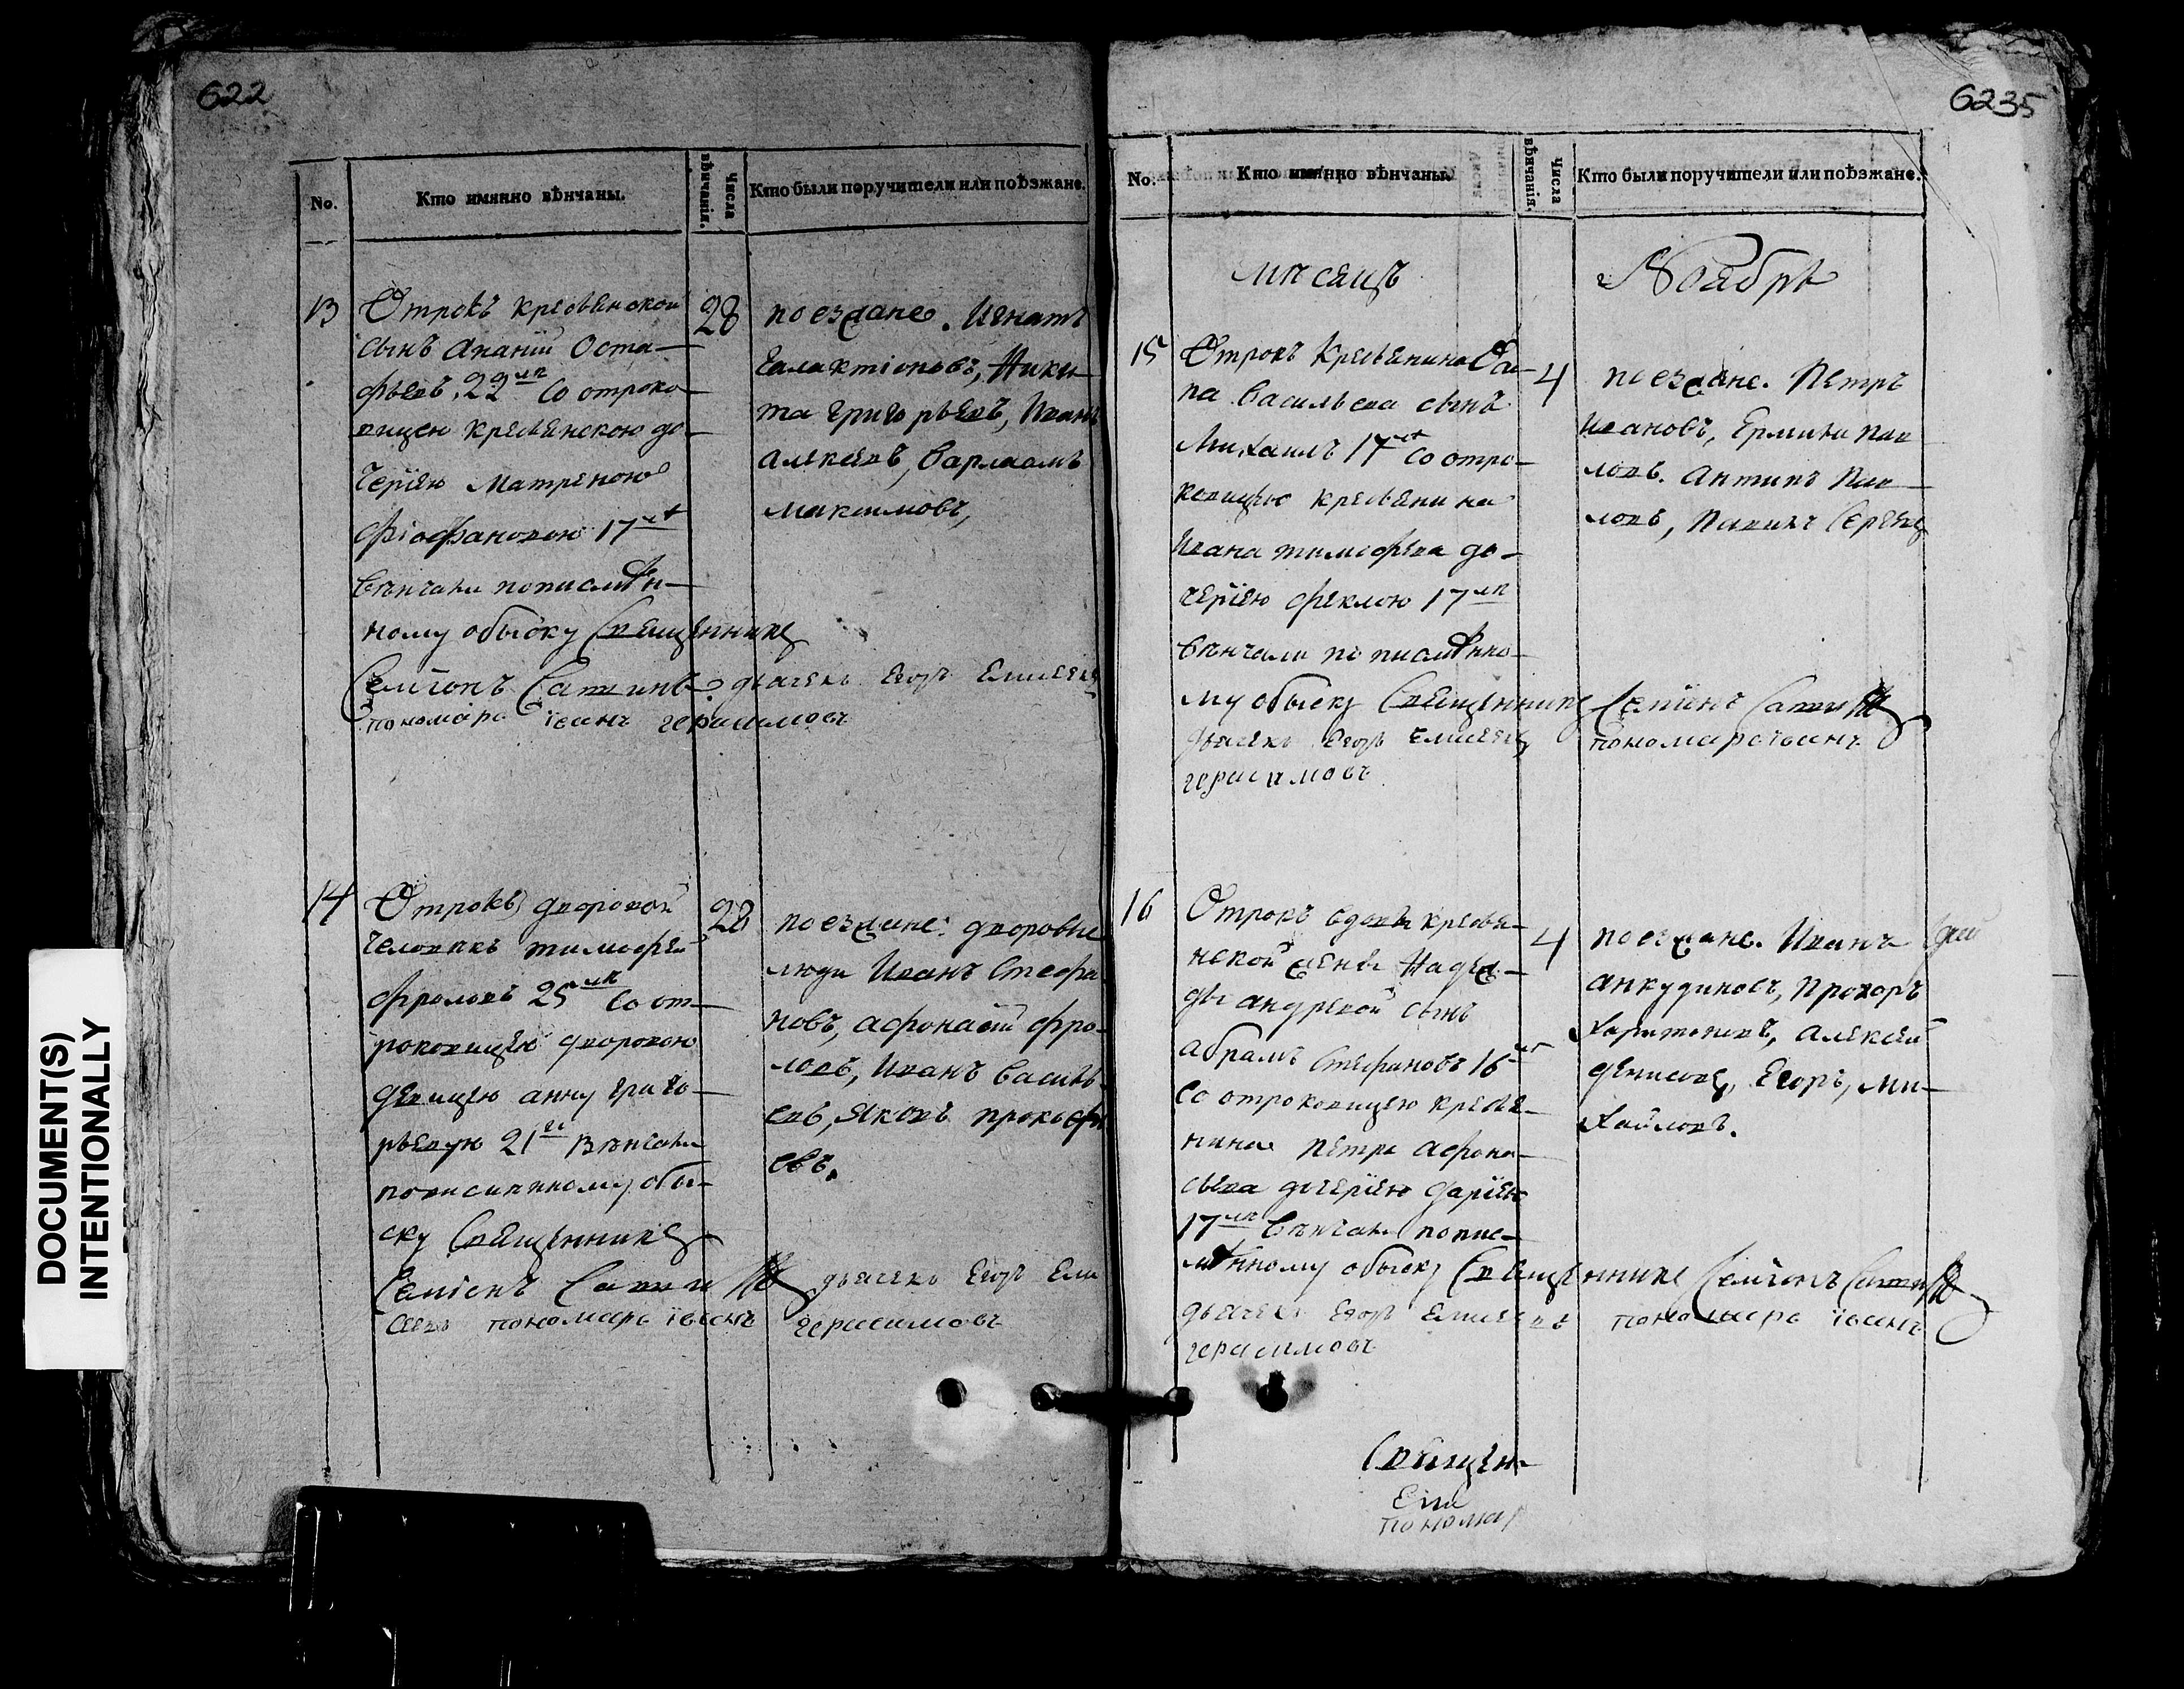 622
No.
Кто имянно вѣнчаны.
Числа вѣнчанія.
Кто были поручители или поѣзжане.
13
Отрокъ кресьянской
сынъ Ананїй Оста-
фьевъ, 22 лѣ со отроко-
вицею кресьянскою до-
черїею Матреною
Фіофановою 17 лѣ
вѣнчаны по писмен-
ному обыску Священникъ
Семїонъ дьячекъ Егоръ Елисеевъ
пономарь їванъ герасимовъ
28
поезжане. Игнатъ
Галактіоновъ, Ники-
та Григорьевъ, Иванъ
Алексеевъ, Варлаамъ
Максимовъ,
14
Отрокъ дворовой
человѣкъ тимофей
фроловъ 25 лѣ со от-
роковицею дворовою
девицею анну григо-
рьевую 21 вѣнчаны
по писменному обы-
ску Священникъ
Семїонъ дьячекъ Егоръ Ели
сеевъ пономарь їванъ герасимовъ
28
поезжане: дворовые
люди Иванъ Стефа-
новъ, афонасїй фро-
ловъ, Иванъ Василь
евъ, Яковъ прокофи
евъ.
6235
No.
Кто имянно вѣнчаны.
Числа вѣнчанія.
Кто были поручители или поѣзжане.
мѣсяцъ Ноябрь
15
Отрокъ Кресьянина
па Васильева сынъ
Михаилъ 17 лѣ со отро-
ковицею кресьянина
Ивана тимофеева до-
черїею феклою 17 лѣ
вѣнчаны по писменно-
му обыску Священникъ Семїонъ
дьячекъ Егоръ Елисеевъ пономарь їванъ
герасимовъ
4
поезжане. Петръ
Ивановъ, Ермила Пав
ловъ. Антипъ Пав-
ловъ, Павилъ Сергеевъ
16
Отрокъ вдовы кресья-
нской жены Надеж-
ды андревой сынъ
абрамъ Стефановъ 16 лѣ
со отроковицею кресья-
нина Петра афона-
сьева дочерїею дарїею
17 лѣ вѣнчаны по пис-
менному обыску Священникъ Семїонъ
дьячекъ Егоръ Елисеевъ пономарь їванъ
герасимовъ
4
поезжане. Иванъ
анкудиновъ, Прохоръ
Харитоновъ, алексей
денисовъ, Егоръ, Ми-
хайловъ.
Священ-
Ели
пономар
DOCUMENT(S)
INTENTIONALLY